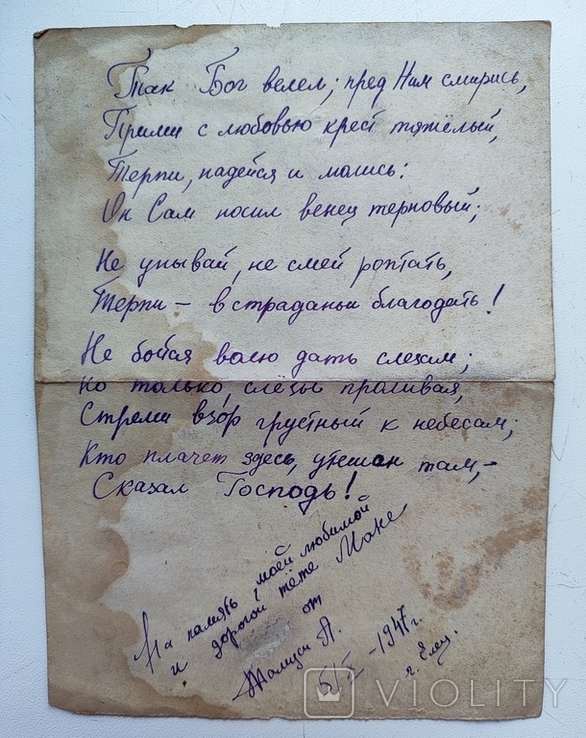 Так Бог велел; пред Ним смирись,
Прими с любовью крест тяжёлый,
Терпи, надейся и молись:
Он Сам носил венец терновый;
Не унывай, не смей роптать,
Терпи – в страданьи благодать!
Не бойся волю дать слезам;
Но только, слёзы проливая,
Стреми взор грустный к небесам;
Кто плачет здесь, утешан там,–
Сказал Господь!
На память моей любимой
и дорогой тёте Мане
от
А.
1947 г.
г. Елец.
VIOLITY